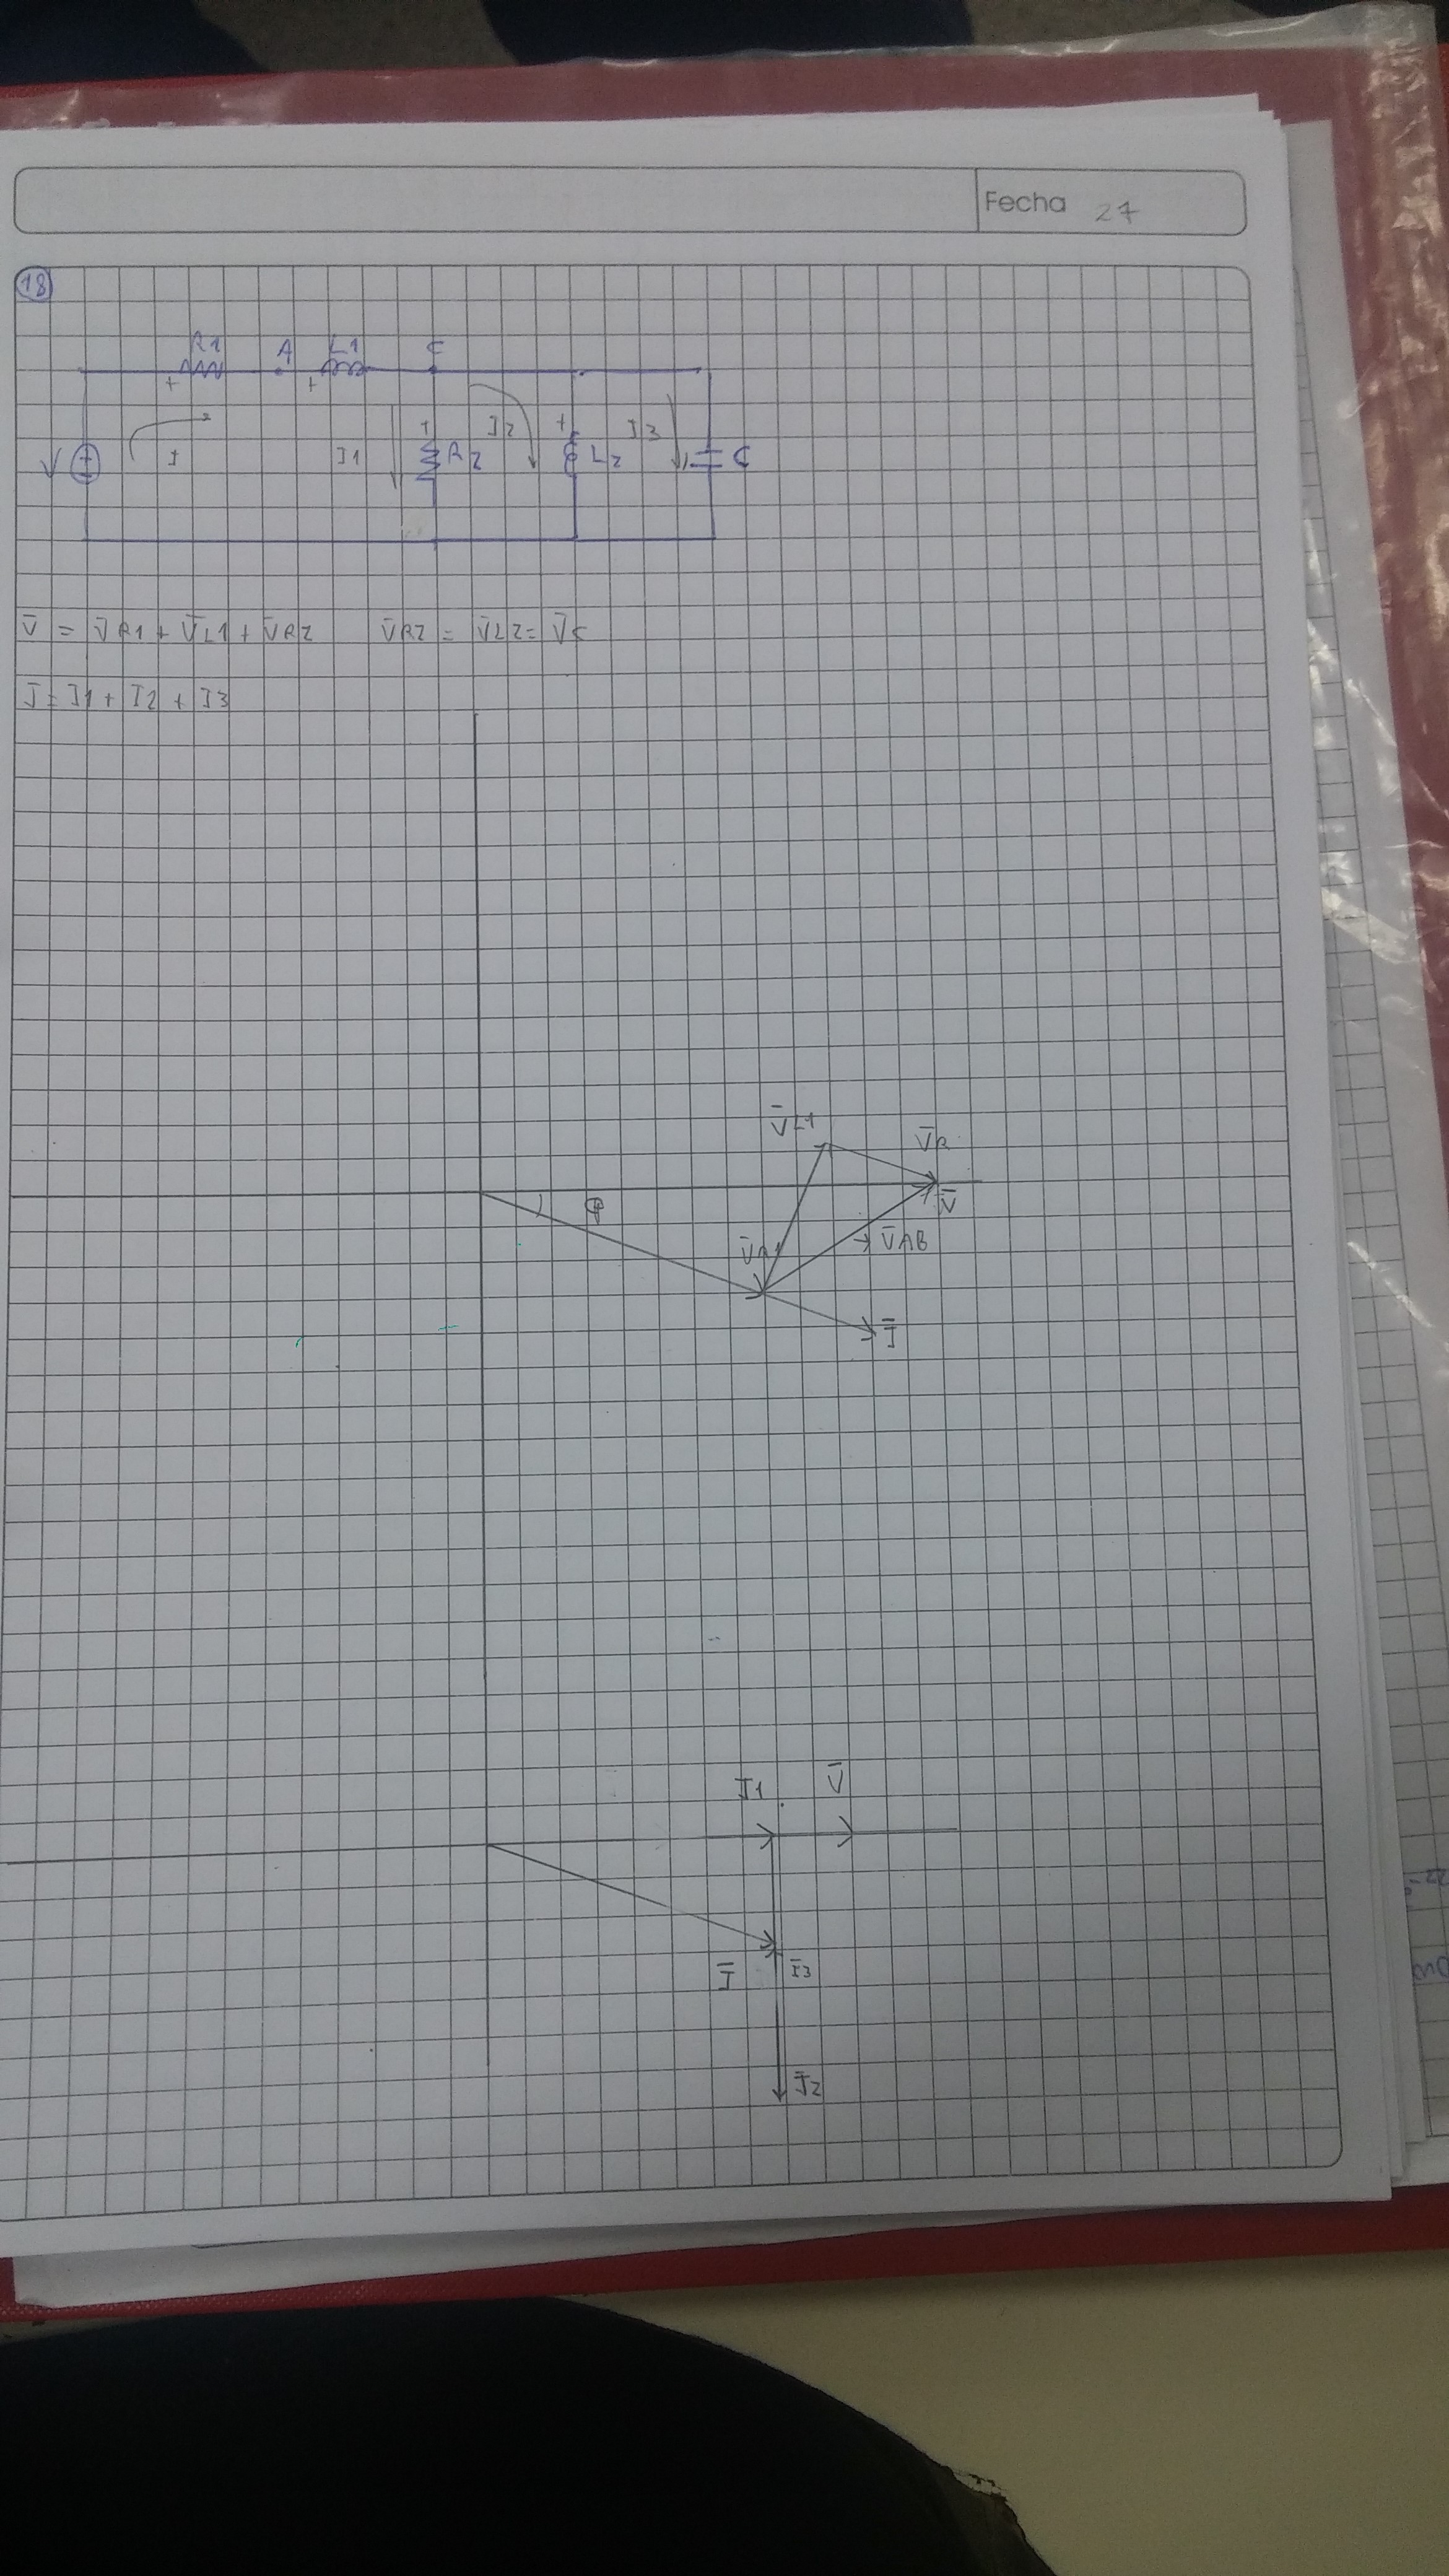 Fecha 27
18
R1 A L1 C
+ +
V + I I1 + R2 I2 + L2 I3 C
V̄ = V̄R1 + V̄L1 + V̄R2 V̄R2 = V̄L2 = V̄C
Ī = I1 + I2 + I3
V̄L1 V̄R
φ V̄
V̄R1 V̄AB
Ī
I1 V̄
Ī Ī3
Ī2